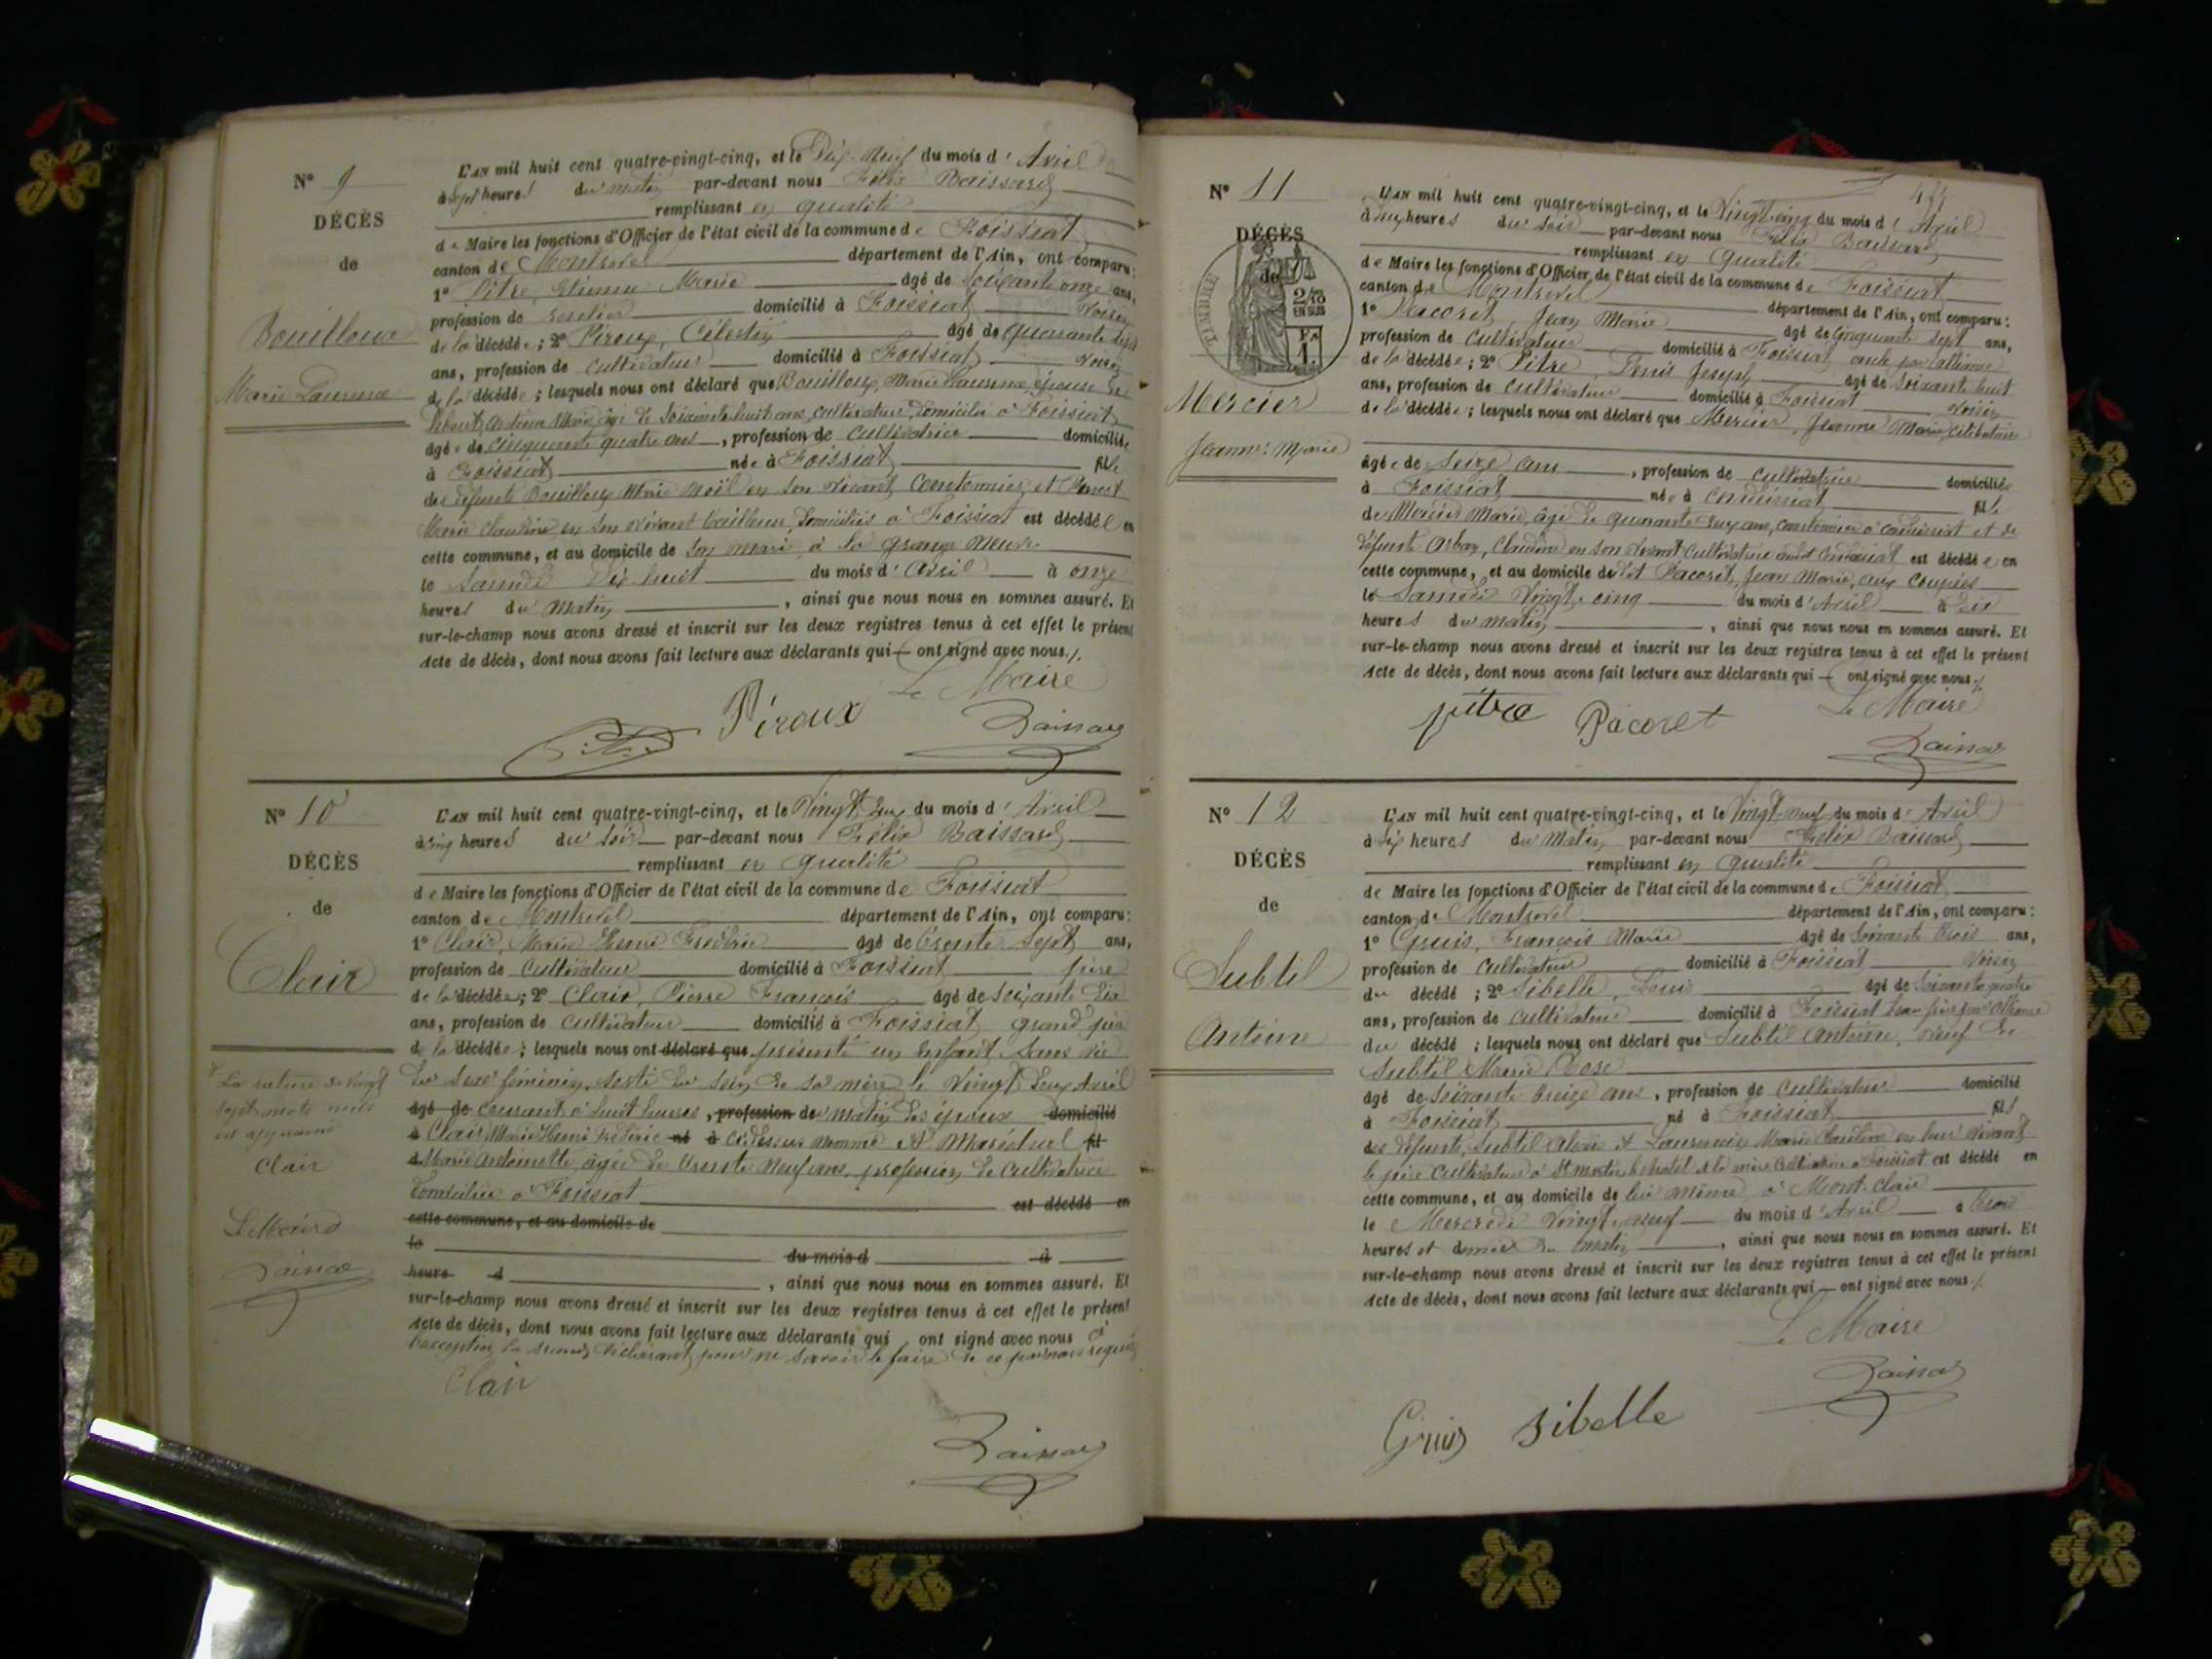 N° 9
DÉCÈS
de
Bouilloux
Marie Laurence
L'AN mil huit cent quatre-vingt-cinq, et le Dix-Neuf du mois d'Avril
à sept heures du matin par-devant nous Félix Baissard
remplissant en qualité
de Maire les fonctions d'Officier de l'état civil de la commune de Foissiat
canton de Montrevel département de l'Ain, ont comparu:
1° Pitre, Etienne Marie âgé de Soixante onze ans,
profession de domicilié à Foissiat Voisin
de la décédée; 2° Péroux, Célestin âgé de quarante sept
ans, profession de cultivateur domicilié à Foissiat voisin
de la décédée; lesquels nous ont déclaré que Bouilloux, Marie Laurence, épouse de
Antoine Marie, âgé de Soixante huit ans, cultivateur, domicilié à Foissiat
âgée de Cinquante quatre ans, profession de Cultivatrice domiciliée
à Foissiat née à Foissiat fille
des défunts Bouilloux Marie Noël en son vivant Cantonnier, et
Marie Claudine en son vivant tailleuse, domiciliés à Foissiat est décédée en
cette commune, et au domicile de son mari à la grange Neuve
le Samedi dix huit du mois d'Avril à onze
heures du Matin, ainsi que nous nous en sommes assuré. Et
sur-le-champ nous avons dressé et inscrit sur les deux registres tenus à cet effet le présent
Acte de décès, dont nous avons fait lecture aux déclarants qui ont signé avec nous./.
Le Maire
Péroux
Baissard
N° 10
DÉCÈS
de
Clair
La rature de Vingt
sept mots nuls
est approuvée
Clair
Le Maire
Baissard
L'AN mil huit cent quatre-vingt-cinq, et le Vingt deux du mois d'Avril
à cinq heures du soir par-devant nous Félix Baissard
remplissant en qualité
de Maire les fonctions d'Officier de l'état civil de la commune de Foissiat
canton de Montrevel département de l'Ain, ont comparu:
1° Clair, Marie Henri Frédéric âgé de trente sept ans,
profession de Cultivateur domicilié à Foissiat père
de la décédée; 2° Clair, Pierre François âgé de soixante dix
ans, profession de cultivateur domicilié à Foissiat grand père
de la décédée; lesquels nous ont déclaré que présenté un Enfant Sans vie
du sexe féminin, sorti du sein de sa mère le Vingt deux Avril
âgé de courant à huit heures, profession de du matin des époux domicilié
à Clair Marie Henri Frédéric né à Ci-dessus nommé et Maréchal fil
d Marie Antoinette, âgée de trente neuf ans, profession de cultivatrice
domiciliée à Foissiat est décédé en
cette commune, et au domicile de
le du mois d à
heure d, ainsi que nous nous en sommes assuré. Et
sur-le-champ nous avons dressé et inscrit sur les deux registres tenus à cet effet le présent
Acte de décès, dont nous avons fait lecture aux déclarants qui ont signé avec nous à
l'exception du second déclarant pour ne savoir le faire de ce par nous requis
Clair
Baissard
484
N° 11
DÉCÈS
de
TIMBRE
2/10
EN SUS
1
Mercier
Jeanne Marie
L'AN mil huit cent quatre-vingt-cinq, et le Vingt cinq du mois d'Avril
à deux heures du soir par-devant nous Félix Baissard
remplissant en qualité
de Maire les fonctions d'Officier de l'état civil de la commune de Foissiat
canton de Montrevel département de l'Ain, ont comparu:
1° Pacoret, Jean Marie âgé de Cinquante sept ans,
profession de Cultivateur domicilié à Foissiat oncle par alliance
de la décédée; 2° Pitre, Denis Joseph âgé de Soixante huit
ans, profession de cultivateur domicilié à Foissiat voisin
de la décédée; lesquels nous ont déclaré que Mercier, Jeanne Marie, célibataire
âgée de Seize ans, profession de cultivatrice domiciliée
à Foissiat née à Condeissiat fille
de Mercier Marie, âgé de quarante deux ans, cantonnier à Condeissiat et de
défunte Claudine en son vivant cultivatrice audit Condeissiat est décédée en
cette commune, et au domicile dudit Pacoret, Jean Marie, aux
le Samedi Vingt-cinq du mois d'Avril à dix
heures du matin, ainsi que nous nous en sommes assuré. Et
sur-le-champ nous avons dressé et inscrit sur les deux registres tenus à cet effet le présent
Acte de décès, dont nous avons fait lecture aux déclarants qui ont signé avec nous./.
Le Maire
pitre Pacoret
Baissard
N° 12
DÉCÈS
de
Subtil
Antoine
L'AN mil huit cent quatre-vingt-cinq, et le Vingt-neuf du mois d'Avril
à six heures du Matin par-devant nous Félix Baissard
remplissant en qualité
de Maire les fonctions d'Officier de l'état civil de la commune de Foissiat
canton de Montrevel département de l'Ain, ont comparu:
1° Guis, François Marie âgé de Soixante trois ans,
profession de Cultivateur domicilié à Foissiat Voisin
du décédé; 2° Sibelle, Louis âgé de Soixante quatre
ans, profession de cultivateur domicilié à Foissiat beau frère par Alliance
du décédé; lesquels nous ont déclaré que Subtil Antoine, veuf de
Subtil Marie Rose
âgé de soixante treize ans, profession de cultivateur domicilié
à Foissiat né à Foissiat fils
des défunts, Subtil et Marie Claudine en leur vivant
le père Cultivateur à St martin le chatel & la mère Cultivatrice à Foissiat est décédé en
cette commune, et au domicile de lui même, à Mont-Clair
le Mercredi Vingt-neuf du mois d'Avril à trois
heures et demie du matin, ainsi que nous nous en sommes assuré. Et
sur-le-champ nous avons dressé et inscrit sur les deux registres tenus à cet effet le présent
Acte de décès, dont nous avons fait lecture aux déclarants qui ont signé avec nous./.
Le Maire
Baissard
Guis Sibelle